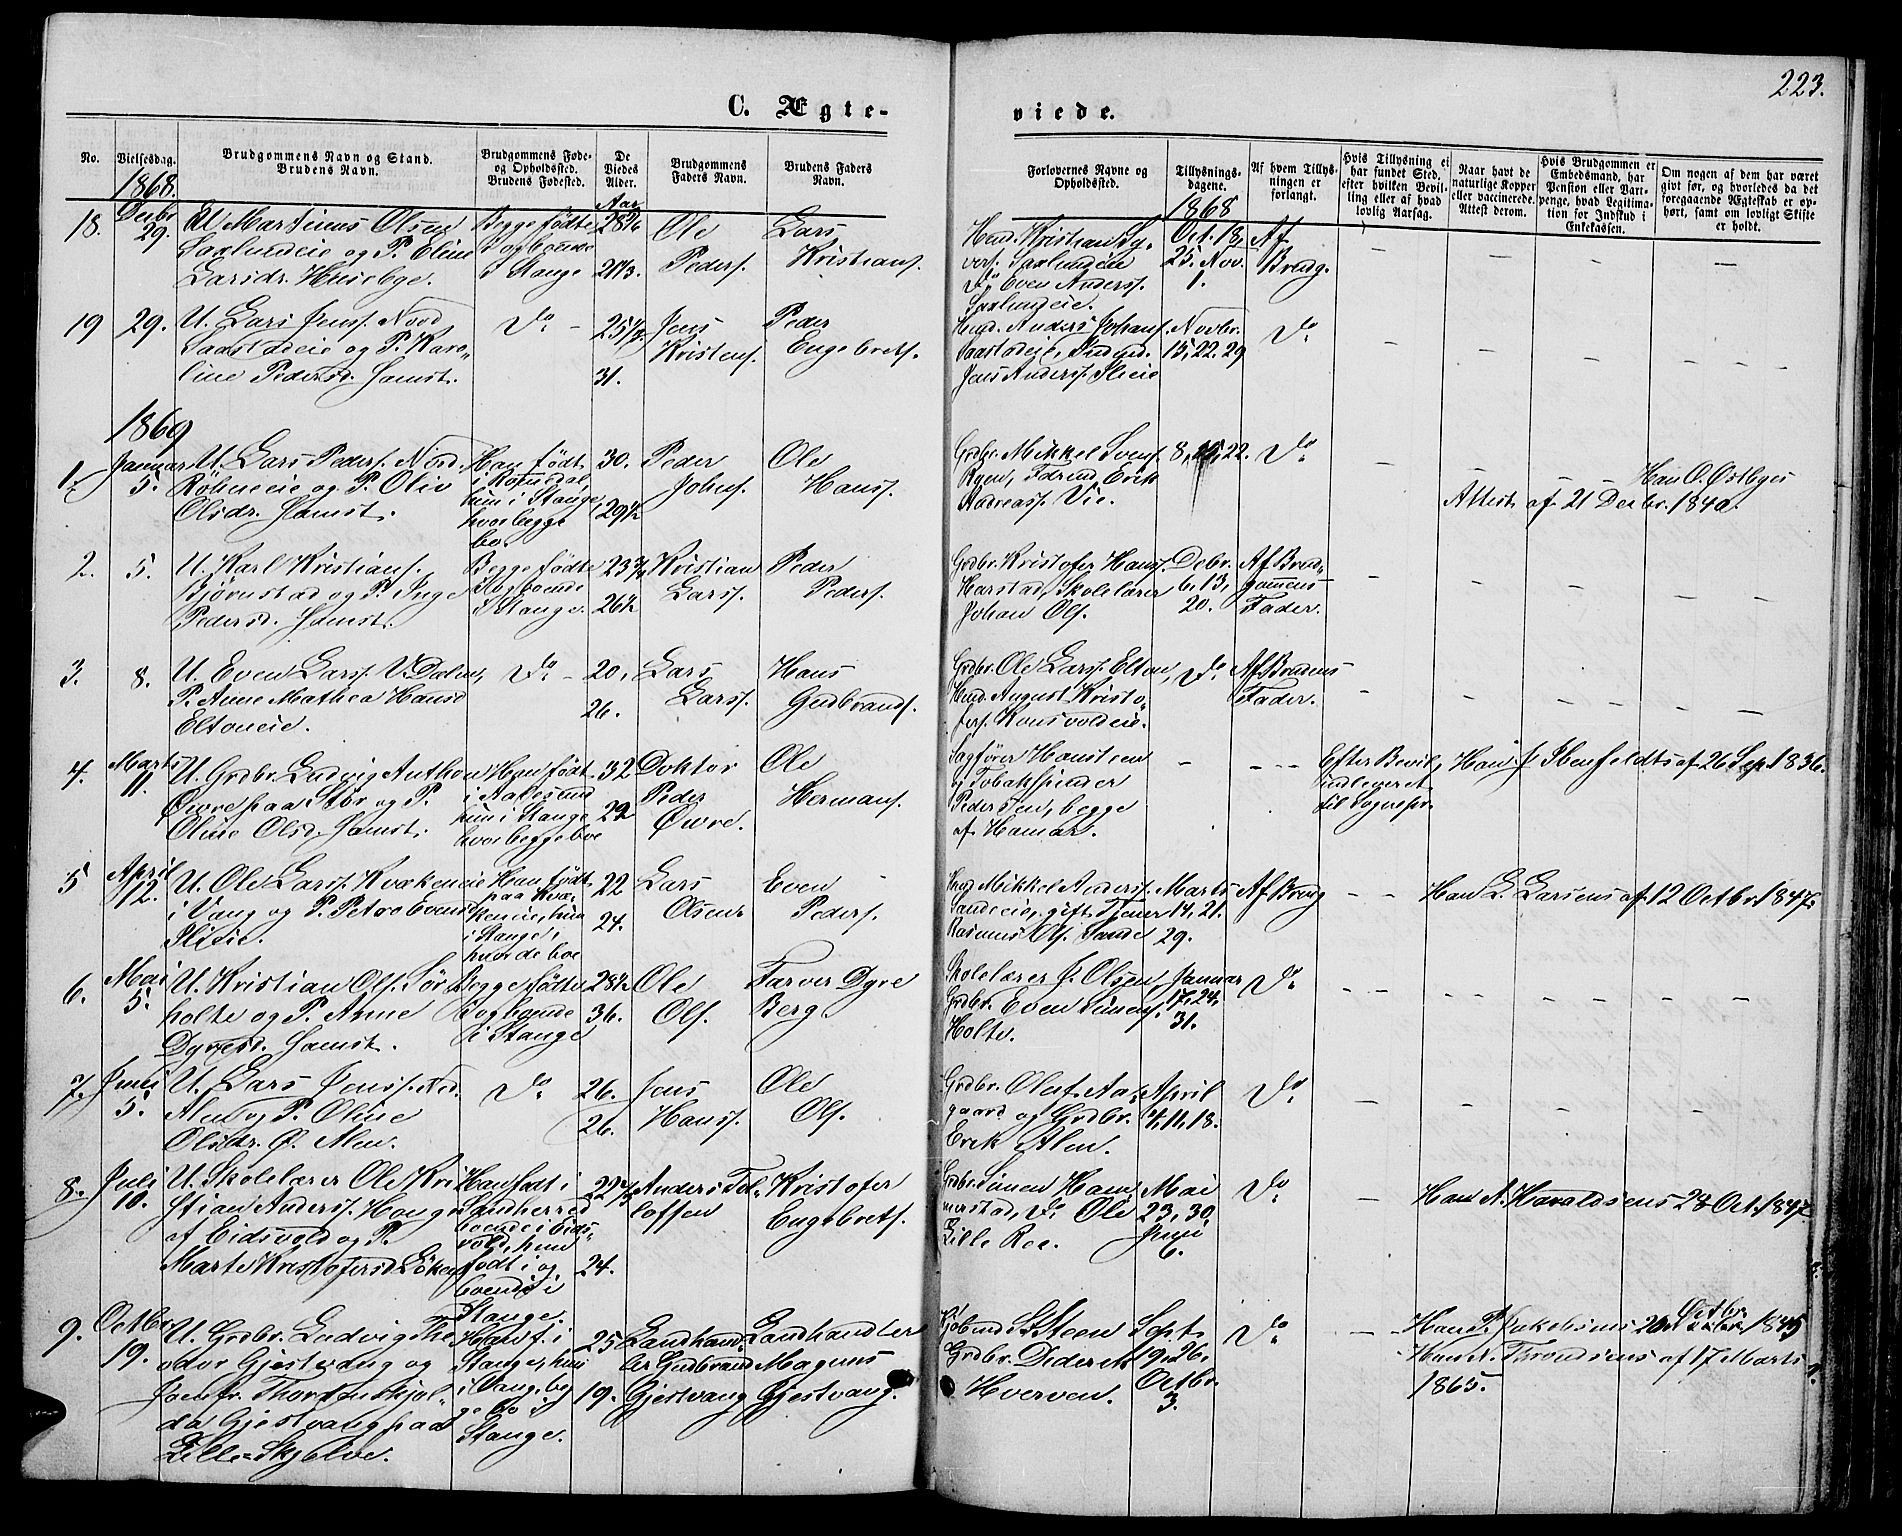 223.
C. Ægte-
viede.
No.
Vielsesdag.
Brudgommens Navn og Stand.
Brudens Navn.
Brudgommens Føde-
og Opholdssted.
Brudens Fødested.
De
Viedes
Alder.
Brudgommens
Faders Navn.
Brudens Faders
Navn.
Forlovernes Navne og
Opholdssted.
Tillysnings-
dagene.
Af hvem Tillys-
ningen er
forlangt.
Hvis Tillysning ei
har fundet Sted,
efter hvilken Bevil-
ling eller af hvad
lovlig Aarsag.
Naar havt de
naturlige Kopper
eller vaccinerede.
Attest derom.
Hvis Brudgommen er
Embedsmand, har
Pension eller Vart-
penge, hvad Legitima-
tion for Indskud i
Enkekassen.
Om nogen af dem har været
givt før, og hvorledes da det
foregaaende Ægteskab er op-
hørt, samt om lovligt Skifte
er holdt.
1868.
Aar
1868
18.
Decbr
29.
U. Martinus Olsen
Saxlundeie og P. Eline
Larsdr. Husebye.
Begge fødte
og boende
i Stange
Ole
Peders.
Lars
Kristians.
Hmd. Kristian Sy-
vers. Saxlundeie
Do Even Anderss.
Saxlundeie.
Oct. 18,
25. Nov.
1.
Af
Brudg.
19
29.
U. Lars Jenss. Nord
Saastadeie og P. Karo-
line Pedersd. Samst.
Do
31.
Jens
Kristens.
Peder
Engebrets.
Hmd. Anders Johans.
Saastadeie,
Jens Anderss.
Novbr.
15, 22. 29
Do
1869
1.
Januar
5.
U. Lars Peders. Nord
og P. Oliv
Olsdr. Samst.
Han født
i Romsdal,
hun i Stange,
hvor begge
bo.
30.
29½
Peder
Johns.
Ole
Hanss.
Grdbr. Mikkel Svens.
Erik
Andreass. Vie.
8, 15, 22.
Do
Han O. Østbyes
Attest af 21 Decbr. 1840.
2.
5.
U. Karl Kristians.
Bjørnstad og P. Inge
Pedersd. Samst.
Begge fødte
og boende
i Stange.
23¾
26½
Kristian
Larss.
Peder
Peders.
Grdbr. Kristofer Hanss.
Harstad, Skolelærer
Johan Ols.
Debr.
6, 13,
20.
Af Brud-
gommens
Fader.
3.
8.
U. Even Larss. V. Dalen,
P. Anne Mathea Hansd
Eltoneie.
Do
20.
26.
Lars
Larss.
Hans
Gudbrands.
Grdbr. Ole Larss. Elton,
Hmd. August Kristo-
fers. Ronsvoldeie.
Do
Af Brudens
Fader.
4.
Marts
11.
U. Grdbr. Ludvig Anthon
Øwre paa Stør og P.
Oline Olsd. Samst.
Han født
i Aalesund
hun i Stange
hvor begge boe
32
22
Doktor
Peder
Øwre.
Ole
Hermans.
Sagfører Hansteen
og Tobakspinder
Pedersen, begge
af Hamar.
Efter Bevil,
indleveret
til Sognepr.
Han J. Ibenfeldts af 26 Sep. 1836.
5
April
12.
U. Ole Larss. Kvækeneie
i Vang og P. Petra Evensd
Han født
paa Kvæ-
keneie, hun
i Stange,
hvor de boe
22
24.
Lars
Olsen
Even
Peders.
Hmd Mikkel Anderss.
Sandeie, gift Tjener
Rasmus Ols. Sande
Marts
14, 21.
29.
Af Brudg
Han L. Larsens af 12 Octbr. 1847.
6.
Mai
5.
U. Kristian Ols. Sør
holte og P. Anne
Dyresd. Samst.
Begge fødte
og boende
i Stange
28½
36.
Ole
Ols.
Farver Dyre
Berg
Skolelærer J. Olsen,
Grdbr. Even Simens.
Holte.
Januar
17, 24,
31.
Do
7.
Juni
5.
U. Lars Jenss. Ned.
Alm og P. Oline
Olsdr. Ø. Alm.
Do
26.
26.
Jens
Hanss.
Ole
Ols.
Grdbr. Oluf Aas-
gaard og Grdbr.
Erik Alm.
April
4, 11, 18.
Do
8.
Juli
10.
U. Skolelærer Ole Kri
stian Anderss. Haug
af Eidsvold og P.
Marte Kristofersd Løken
Han født i
Sandherred
boende i Eids-
vold, hun
født i og
boende i
Stange.
24.
Anders Tol-
lofsen
Kristofer
Engebrets.
Grdbr. Simen Ham-
merstad, Do Ole
Lille Roe.
Mai
23, 30,
Juni
6.
Do
Han A. Haraldsens 28 Oct. 1847
9.
Octbr.
19.
U. Grdbr. Ludvig The
odor Gjestvang og
Jomfr. Thordine Skjol-
da Gjestvang paa
Lille-Skjelve.
Han f. i
Stange, hun
i Vang, beg
ge bo i
Stange.
25
19.
Landhand-
ler Gudbrand
Gjestvang
Landhandler
Magnus
Gjestvang.
Kjøbmd S. Steen
Grdbr. Diderik
Hverven.
Sept.
19, 26.
Octbr.
3.
Do
Octbr.
1845
Han N. Throndsens af 17 Marts
1865.